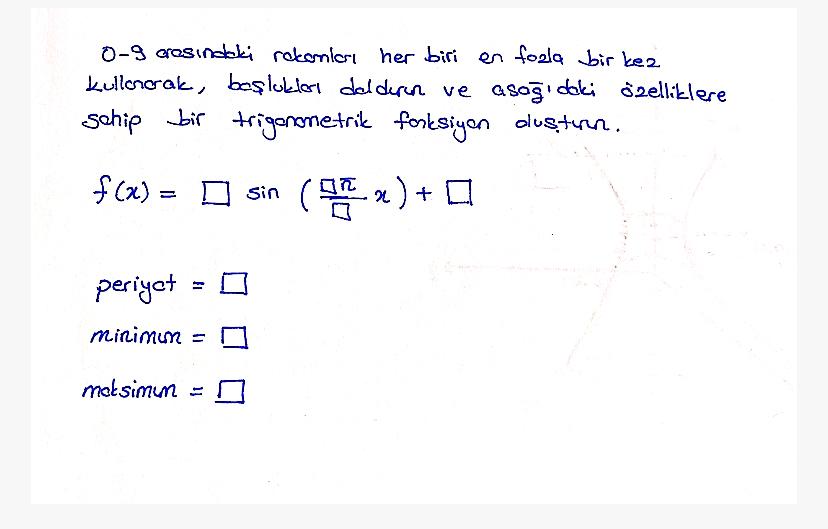 0-9 arasındaki rakamları her biri en fazla bir kez
kullanarak, boşlukları doldurun ve aşağıdaki özelliklere
sahip bir trigonometrik fonksiyon oluşturun.
f(x) = □ sin (□π/□ x) + □
periyot = □
minimum = □
maksimum = □